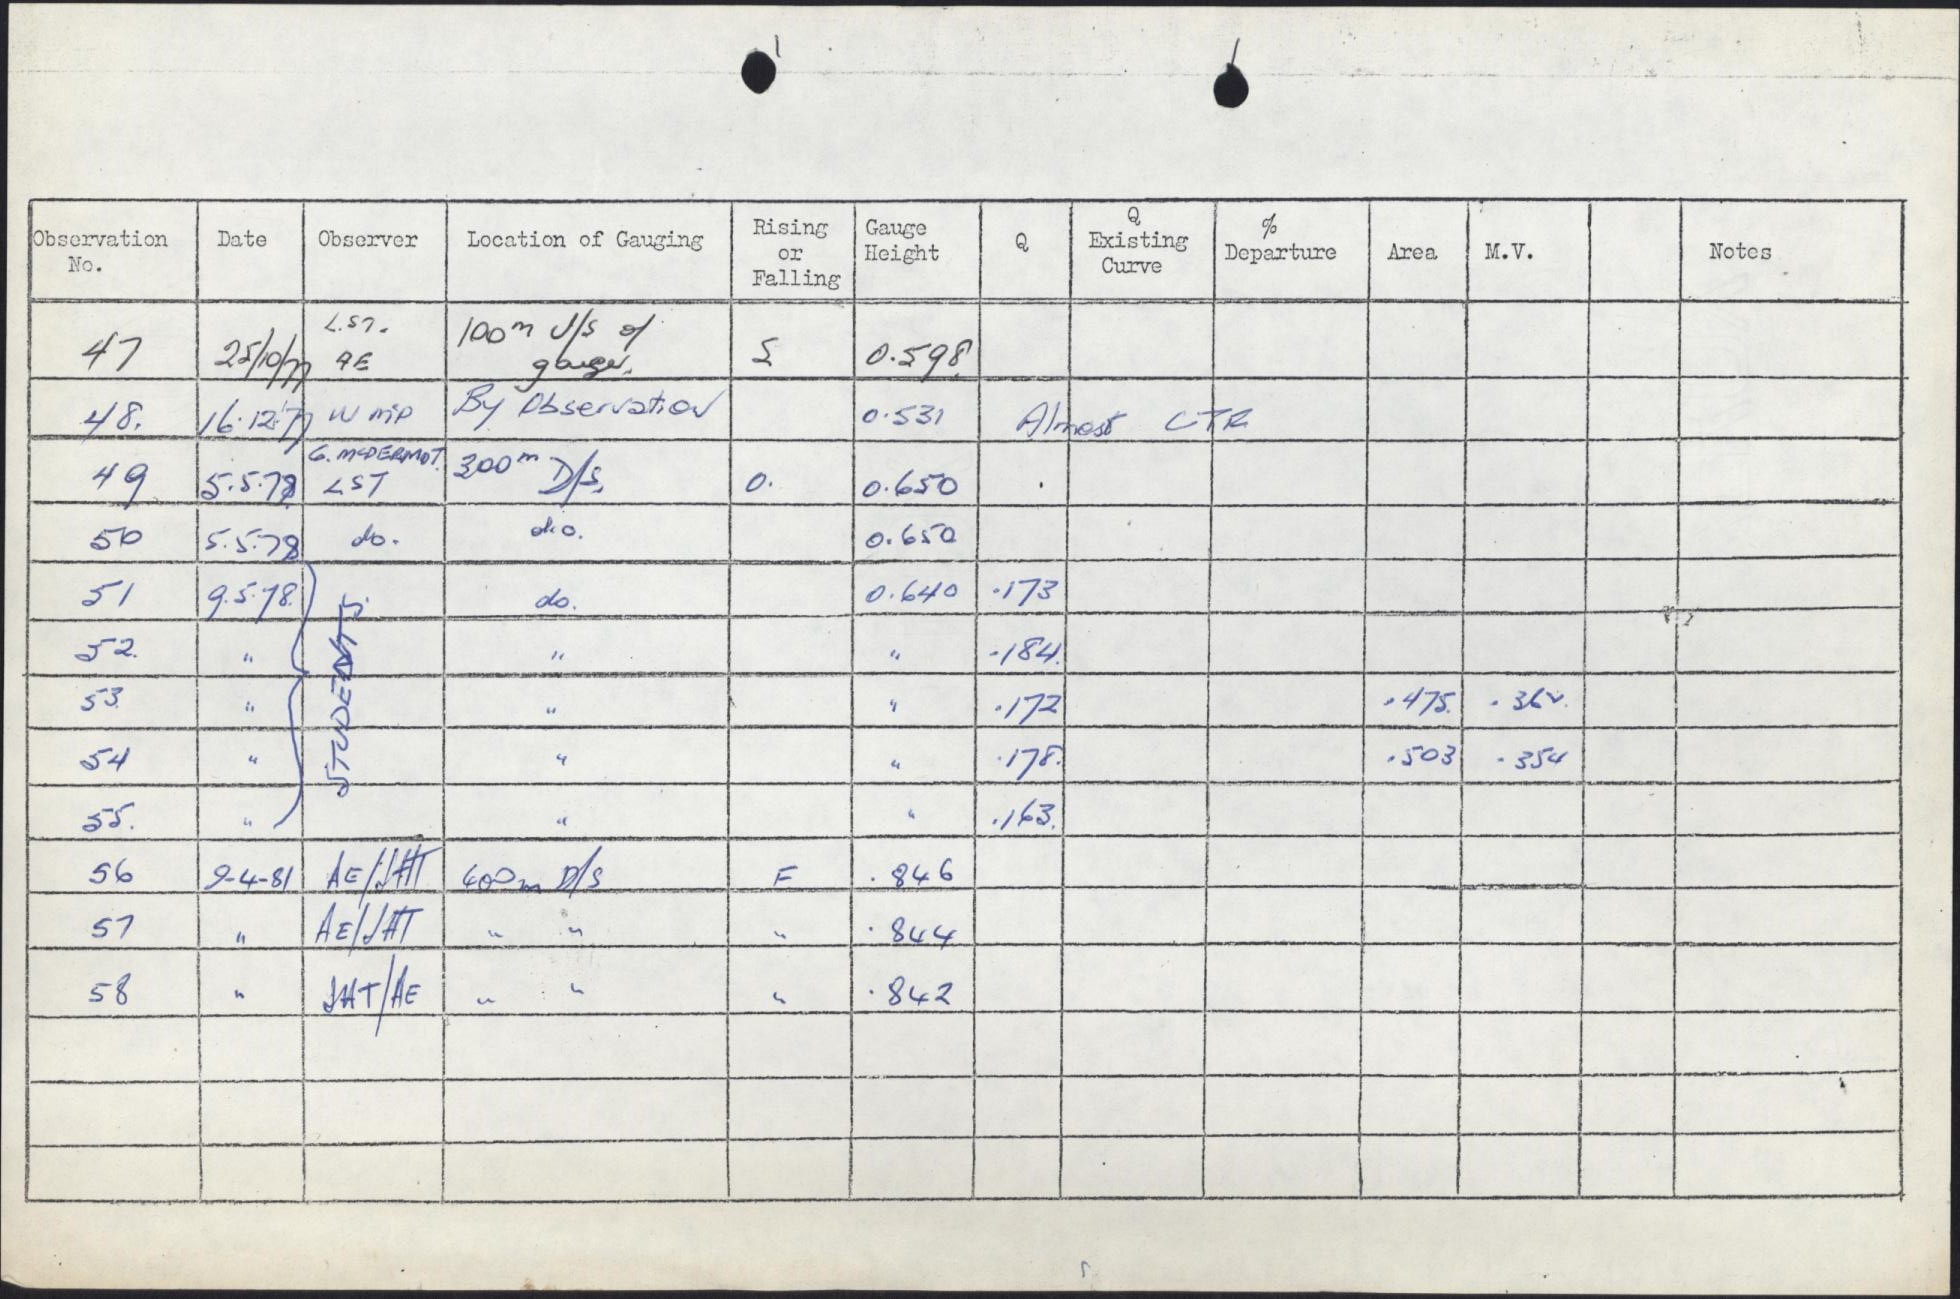 Observation No. Date Observer Location of Gauging Rising or Falling Gauge Height Q Q Existing Curve % Departure Area M.V. Notes
47 25/10/77 L.ST. AE 100m U/S of gauge. S 0.598
48. 16.12.77 By Observation 0.531 Almost CTR
49 5.5.78 G. McDERMOT. LST 300m D/S. 0. 0.650
50 5.5.78 do. do. 0.650
51 9.5.78. STUDENTS. do. 0.640 .173
52. " " " .184.
53. " " " .172 .475. .362.
54 " " " .178. .503 .354
55. " " " .163.
56 9-4-81 AE/JHT 400m D/S F .846
57 " AE/JHT " " " .844
58 " JHT/AE " " " .842